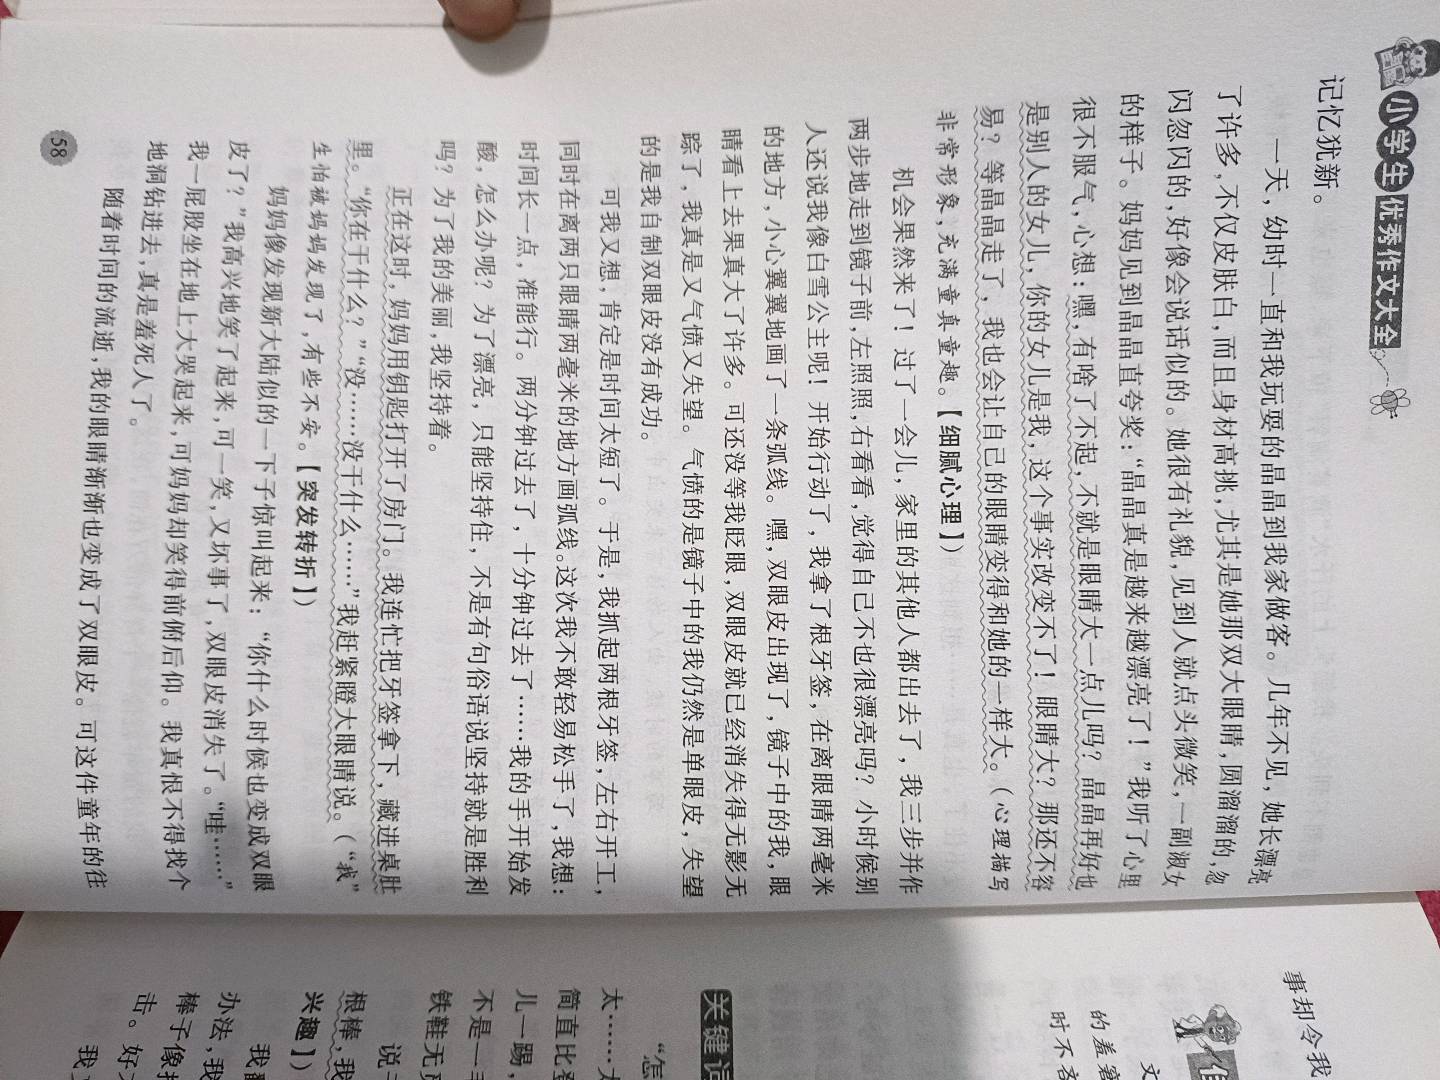 小学生优秀作文大全
记忆犹新。
一天，幼时一直和我玩耍的晶晶到我家做客。几年不见，她长漂亮
了许多，不仅皮肤白，而且身材高挑，尤其是她那双大眼睛，圆溜溜的，忽
闪忽闪的，好像会说话似的。她很有礼貌，见到人就点头微笑，一副淑女
的样子。妈妈见到晶晶直夸奖：“晶晶真是越来越漂亮了！”我听了心里
很不服气，心想：嘿，有啥了不起，不就是眼睛大一点儿吗？晶晶再好也
是别人的女儿，你的女儿是我，这个事实改变不了！眼睛大？那还不容
易？等晶晶走了，我也会让自己的眼睛变得和她的一样大。（心理描写
非常形象，充满童真童趣。【细腻心理】）
机会果然来了！过了一会儿，家里的其他人都出去了，我三步并作
两步地走到镜子前，左照照，右看看，觉得自己不也很漂亮吗？小时候别
人还说我像白雪公主呢！开始行动了，我拿了根牙签，在离眼睛两毫米
的地方，小心翼翼地画了一条弧线。嘿，双眼皮出现了，镜子中的我，眼
睛看上去果真大了许多。可还没等我眨眼，双眼皮就已经消失得无影无
踪了，我真是又气愤又失望。气愤的是镜子中的我仍然是单眼皮，失望
的是我自制双眼皮没有成功。
可我又想，肯定是时间太短了。于是，我抓起两根牙签，左右开工，
同时在离两只眼睛两毫米的地方画弧线。这次我不敢轻易松手了，我想：
时间长一点，准能行。两分钟过去了，十分钟过去了……我的手开始发
酸，怎么办呢？为了漂亮，只能坚持住，不是有句俗语说坚持就是胜利
吗？为了我的美丽，我坚持着。
正在这时，妈妈用钥匙打开了房门。我连忙把牙签拿下，藏进桌肚
里。“你在干什么？”“没……没干什么……”我赶紧瞪大眼睛说。（“我”
生怕被妈妈发现了，有些不安。【突发转折】）
妈妈像发现新大陆似的一下子惊叫起来：“你什么时候也变成双眼
皮了？”我高兴地笑了起来，可一笑，又坏事了，双眼皮消失了。“哇……”
我一屁股坐在地上大哭起来，可妈妈却笑得前俯后仰。我真恨不得找个
地洞钻进去，真是羞死人了。
随着时间的流逝，我的眼睛渐渐也变成了双眼皮。可这件童年的往
58
事却令我
文
的羞窘
时不
关键词
“怎
太……太
简直比登
儿一踢，
不是一
铁鞋无
说
根棒，我
兴趣】）
我
办法，我
棒子像
击。好
我